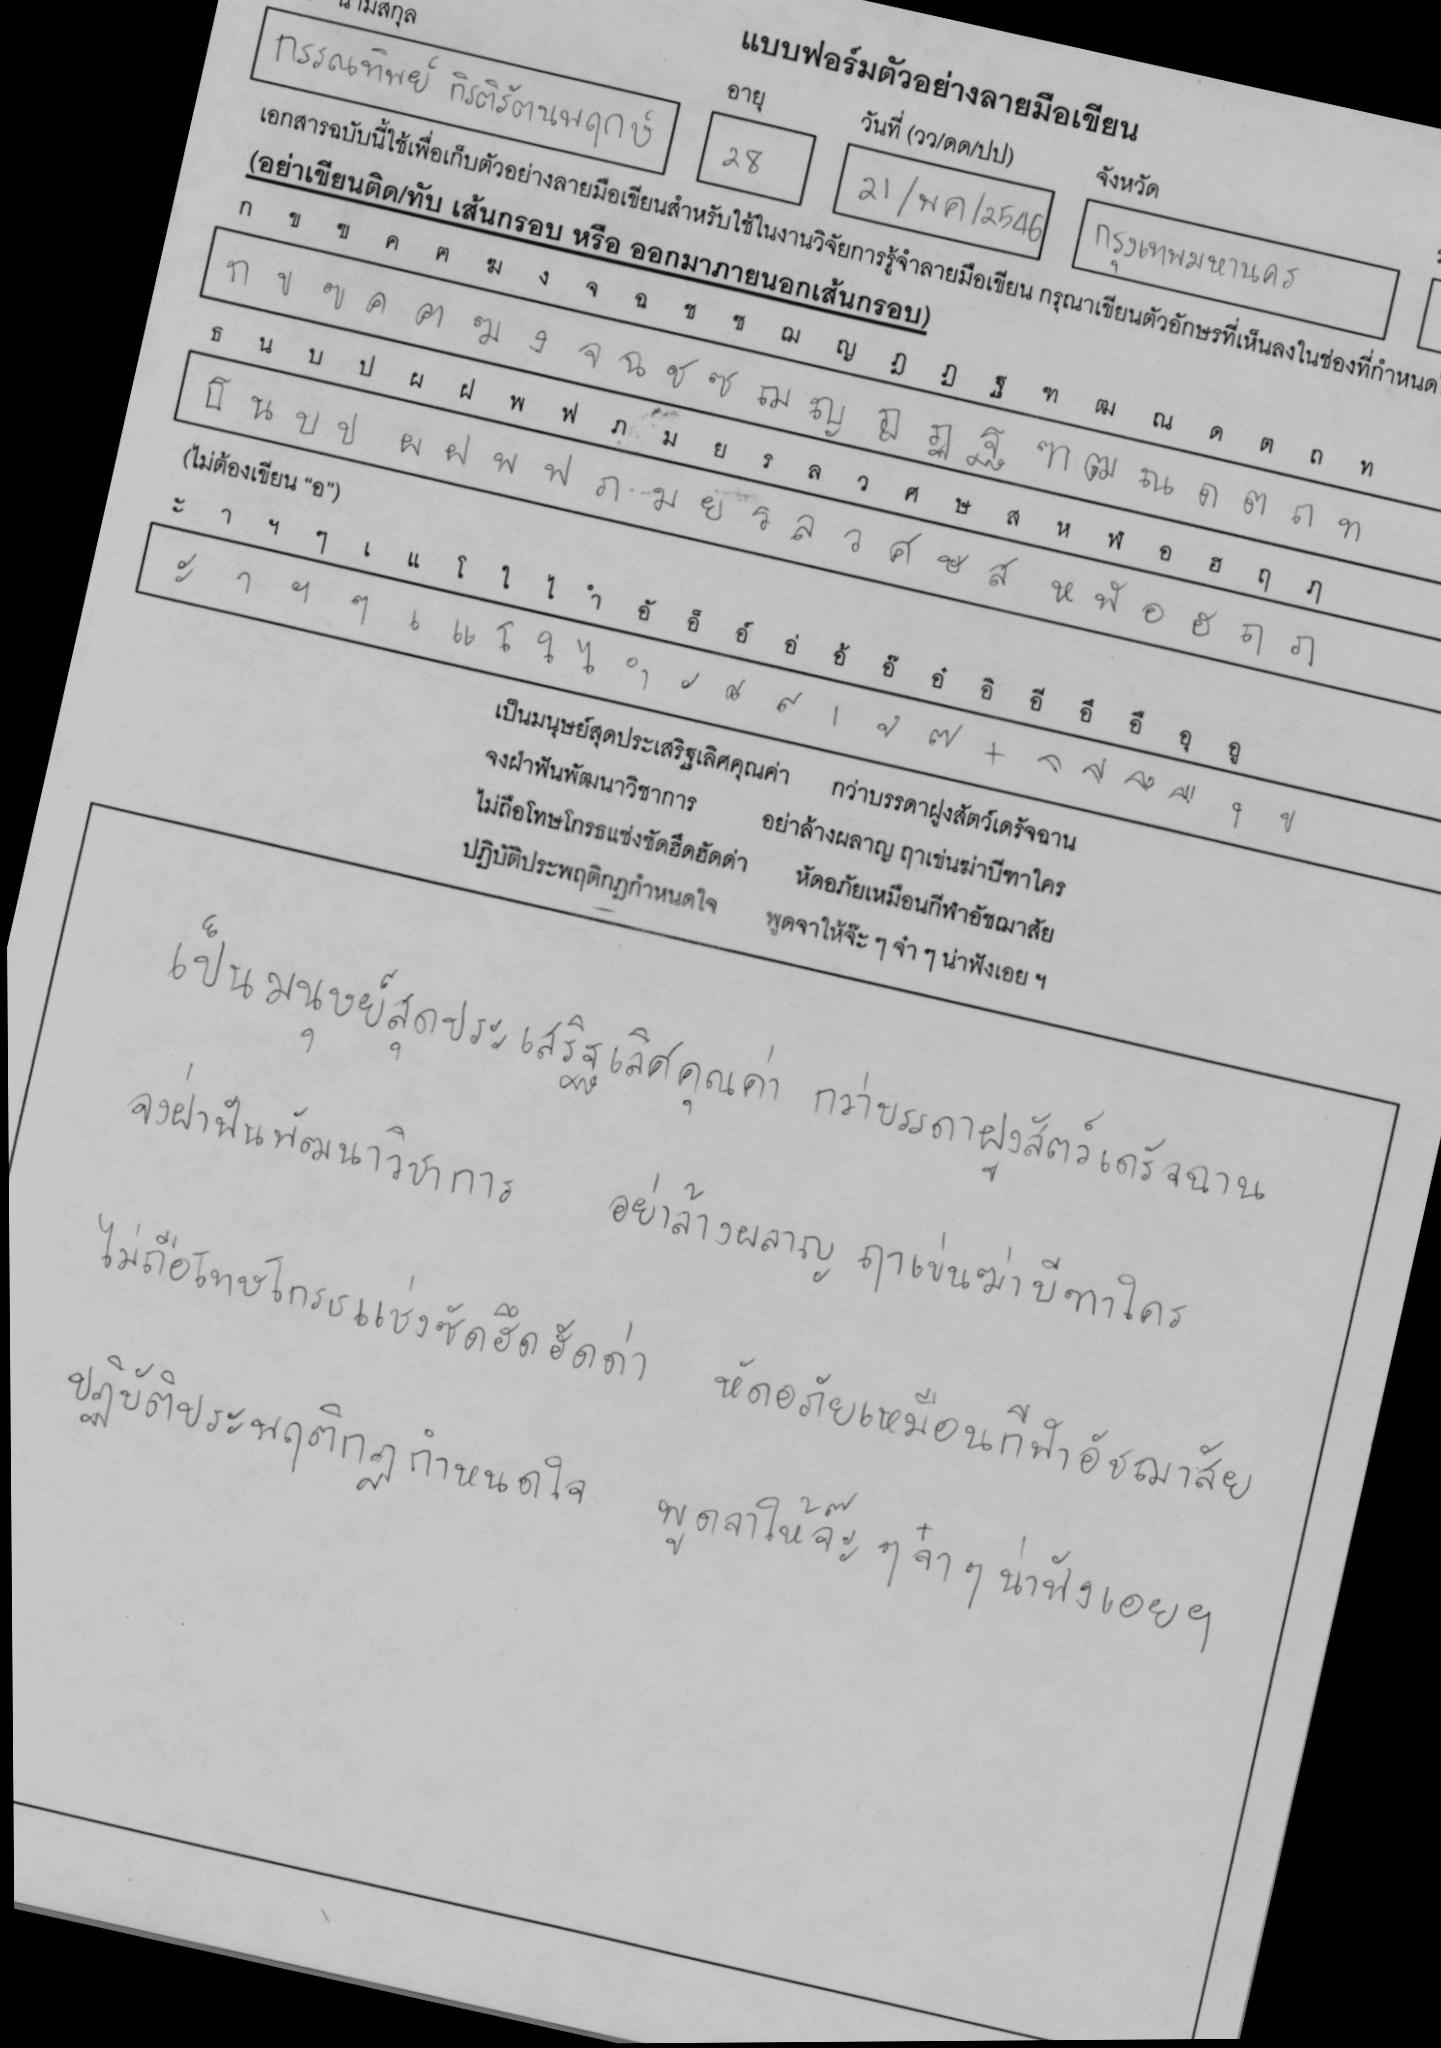 แบบฟอร์มตัวอย่างลายมือเขียน
นามสกุล อายุ วันที่ (วว/ดด/ปป) จังหวัด
กรรณทิพย์ กิรติรัตนพฤกษ์ 28 21/พค/2546 กรุงเทพมหานคร
เอกสารฉบับนี้ใช้เพื่อเก็บตัวอย่างลายมือเขียนสำหรับใช้ในงานวิจัยการรู้จำลายมือเขียน กรุณาเขียนตัวอักษรที่เห็นลงในช่องที่กำหนด
(อย่าเขียนติด/ทับ เส้นกรอบ หรือ ออกมาภายนอกเส้นกรอบ)
ก ข ฃ ค ฅ ฆ ง จ ฉ ช ซ ฌ ญ ฎ ฏ ฐ ฑ ฒ ณ ด ต ถ ท
ก ข ฃ ค ฅ ฆ ง จ ฉ ช ซ ฌ ญ ฎ ฏ ฐ ฑ ฒ ณ ด ต ถ ท
ธ น บ ป ผ ฝ พ ฟ ภ ม ย ร ล ว ศ ษ ส ห ฬ อ ฮ ฤ ฦ
ธ น บ ป ผ ฝ พ ฟ ภ ม ย ร ล ว ศ ษ ส ห ฬ อ ฮ ฤ ฦ
(ไม่ต้องเขียน "อ")
ะ า ฯ ๆ เ แ โ ใ ไ ำ อั อ็ อ์ อ่ อ้ อ๊ อ๋ อิ อี อึ อื อุ อู
ะ า ฯ ๆ เ แ โ ใ ไ ำ ั ็ ์ ่ ้ ๊ ๋ ิ ี ึ ื ุ ู
เป็นมนุษย์สุดประเสริฐเลิศคุณค่า กว่าบรรดาฝูงสัตว์เดรัจฉาน
จงฝ่าฟันพัฒนาวิชาการ อย่าล้างผลาญ ฤาเข่นฆ่าบีฑาใคร
ไม่ถือโทษโกรธแช่งซัดฮึดฮัดด่า หัดอภัยเหมือนกีฬาอัชฌาสัย
ปฏิบัติประพฤติกฎกำหนดใจ พูดจาให้จ๊ะ ๆ จ๋า ๆ น่าฟังเอย ฯ
เป็นมนุษย์สุดประเสริฐเลิศคุณค่า กว่าบรรดาฝูงสัตว์เดรัจฉาน
จงฝ่าฟันพัฒนาวิชาการ อย่าล้างผลาญ ฤาเข่นฆ่าบีฑาใคร
ไม่ถือโทษโกรธแช่งซัดฮึดฮัดด่า หัดอภัยเหมือนกีฬาอัชฌาสัย
ปฏิบัติประพฤติกฏกำหนดใจ พูดจาให้จ๊ะ ๆ จ๋า ๆ น่าฟังเอยฯ